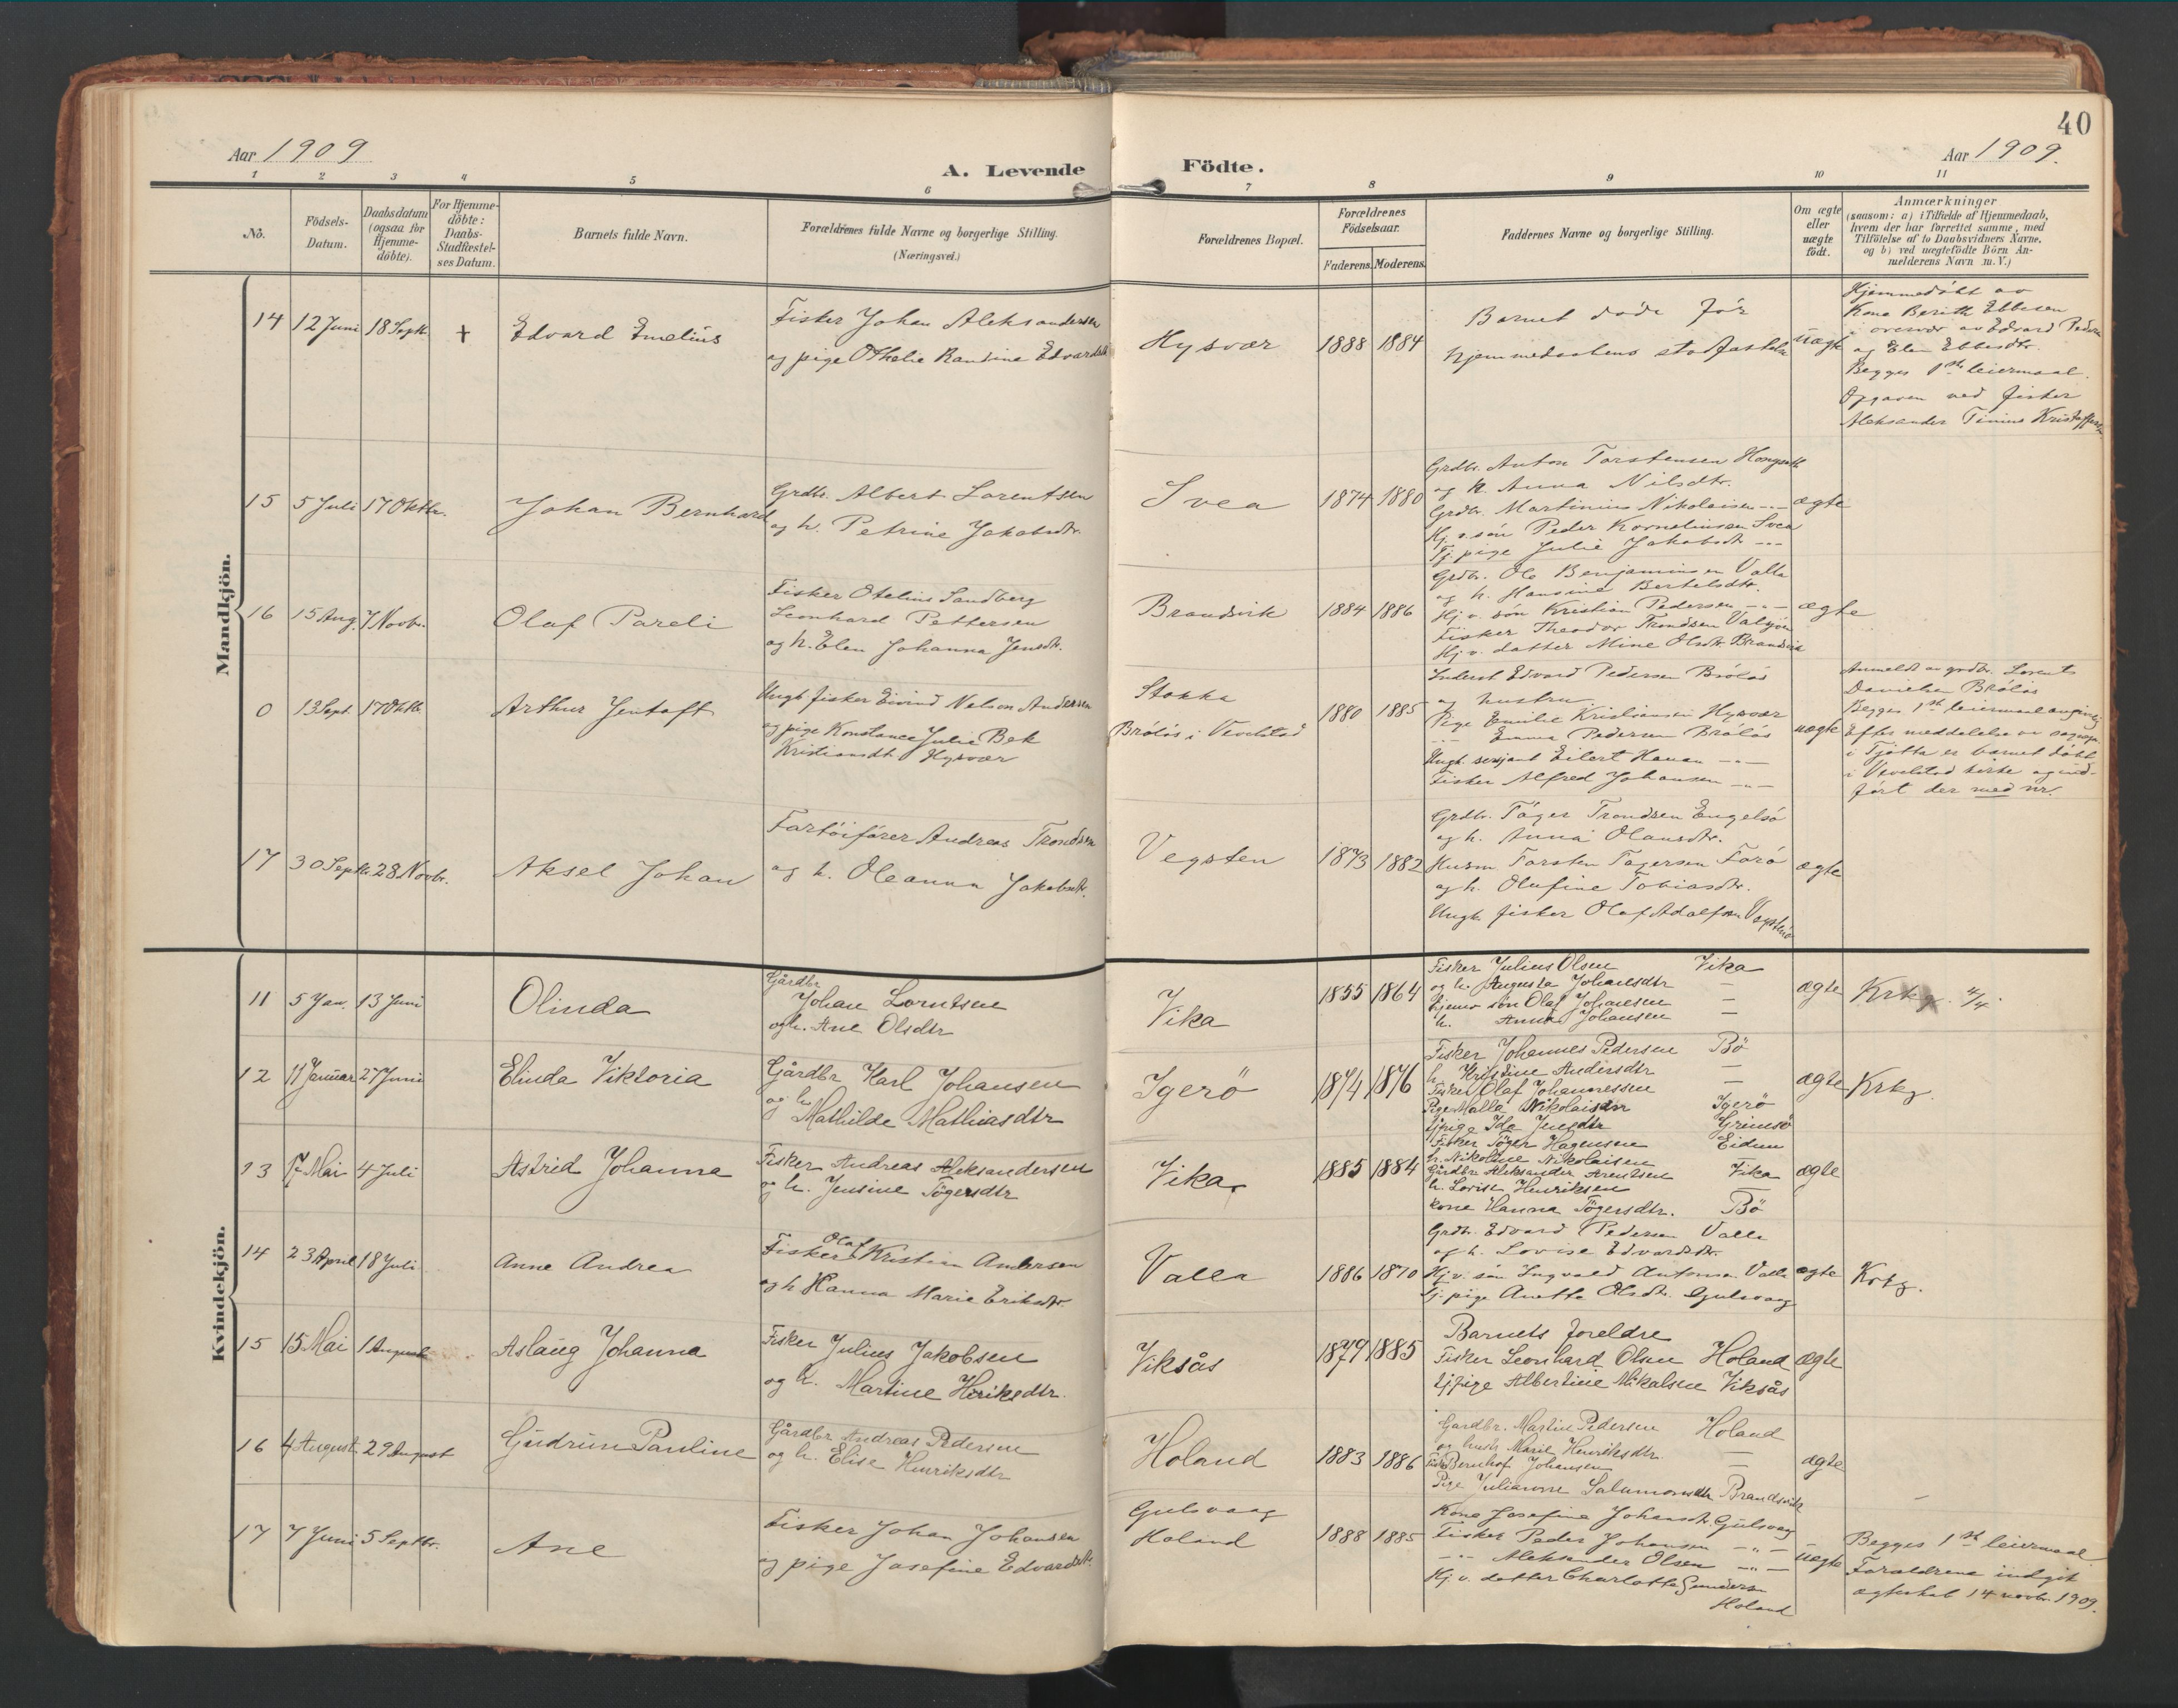 40
Aar 1909
Aar 1909.
A. Levende
Födte.
1 2 3 4 5 6 7 8 9 10 11
No.
Födsels-
Datum.
Daabsdatum
(ogsaa for
Hjemme-
döbte).
For Hjemme-
döbte:
Daabs-
Stadfæstel-
ses Datum.
Barnets fulde Navn.
Forældrenes fulde Navne og borgerlige Stilling.
(Næringsvei.)
Forældrenes Bopæl.
Forældrenes
Födselsaar.
Faderens.
Moderens.
Faddernes Navne og borgerlige Stilling.
Om ægte
eller
uægte
födt.
Anmærkninger
(saasom: a) i Tilfælde af Hjemmedaab,
hvem der har forrettet samme, med
Tilföielse af to Daabsvidners Navne,
og b) ved uægtefödte Börn An-
melderens Navn m. V.)
Mandkjön.
14 12 Juni 18 Septb. + Edvard Emelius
Fisker Johan Aleksandersen
og pige Othelie Randine Edvardsdtr.
Hysvær 1888 1884
Barnet döde för
hjemmedaabens stadfæstelse
uægte
Hjemmedöbt av
Kone Berith Ebbesen
i overvær av Edvard Pedersen
og Elen Ebbesdtr.
Begges 1ste leiermaal.
Opgaven ved fisker
Aleksander Tinius Kristoffersen
15 5 Juli 17 Oktbr. Johan Bernhard
Grdbr. Albert Lorentsen
og h. Petrine Jakobsdtr.
Svea 1874 1880
Grdbr. Anton Torstensen Hongseth
og h. Anna Nilsdtr.
Grdbr. Martinius Nikolaisen -"-
Hj. v. sön Peder Kornelinsen Svea
Tj. pige Julie Jakobsdtr -"-
ægte
16 15 Aug. 7 Novbr. Olaf Pareli
Fisker Otelius Sandberg
Leonhard Pettersen
og h. Elen Johanna Jensdtr.
Brandsvik 1884 1886
Grdbr. Ole Benjaminsen Valla
og h. Hansine Bertelsdtr.
Hj. v. sön Kristian Pedersen -"-
Fisker Theodor Trondsen Valsjön
Hj. v. datter Mine Olsdtr Brandsvik
ægte
0 13 Sept. 17 Oktb. Arthur Jentoft
Ungk. fisker Eivind Nelson Andersen
og pige Konstance Julie Bek
Kristiansdtr. Hysvær
Stokka
Bröløs i Vevelstad
1880 1885
Inderst Edvard Pedersen Bröløs
og hustru
Pige Emilie Kristiansen Hysvær
-"- Emma Pedersen Bröløs
Ungk. sersjant Eilert Hanan -"-
Fisker Alfred Johansen -"-
uægte
Anmeldt av grdbr. Lorents
Danielsen Bröløs
Begges 1ste leiermaal angivelig
Efter meddelelse av sogneprst
i Tjøtta er barnet døbt
i Vevelstad kirke og ind-
fört der med nr.
17 30 Septb. 28 Novbr. Aksel Johan
Fartöiförer Andreas Trondsen
og h. Oleanna Jakobsdtr.
Vegsten 1873 1882
Grdbr. Töger Trondsen Engelsö
og h. Anna Olausdtr.
Husm Torsten Tögersen Forö
og h. Olufine Tobiasdtr.
Ungk. fisker Olaf Adolfsen Vegsten
ægte
Kvindekjön.
11 5 Jan. 13 Juni Olinda
Gårdbr
Johan Lorntsen
og h. Ane Olsdtr
Vika 1855 1864
Fisker Julius Olsen Vika
og h. Augusta Johansdtr -
Hjemv sön Olaf Johansen -
h. Anna Johansen -
ægte Krkg. 4/4.
12 11 Januar 27 Juni Elinda Viktoria
Gårdbr Karl Johansen
og h.
Mathilde Mathiasdtr
Igerö 1874 1876
Fisker Johannes Pedersen Bö
h. Kristine Andersdtr -
Fisker Olaf Johannessen -
Pige Malla Nikolaisen Igerö
tjpige Ida Jensdtr Grimsö
ægte Krkg.
13 7 Mai 4 Juli Astrid Johanna
Fisker Andreas Aleksandersen
og h. Jensine Tögersdtr
Vika. 1885 1884
Fisker Töger Hagensen Eidem
h. Nikoline Nikolaisen
Gårdbr Aleksander Arentsen Vika
h. Lovise Henriksen
kone Hanna Tögersdtr. Bö
ægte
14 23 April 18 Juli Anne Andrea
Olaf
Fisker Kristian Andersen
og h Hanna Marie Eriksdtr
Valla 1886 1870
Grdb. Edvard Pedersen Valla
og h. Lovise Edvardsdtr.
Hj. v. sön Ingvald Antonsen Valla
Tj. pige Anette Olsdtr. Gulsvaag
ægte Krkg.
15 15 Mai 1 August Aslaug Johanna
Fisker Julius Jakobsen
og h. Martine Henriksdtr.
Viksås 1879 1885
Barnets foreldre
Fisker Leonhard Olsen Holand
tjpige Albertine Mikalsen Viksås
ægte
16 4 August. 29 August Gudrun Pauline
Gårdbr Andreas Pedersen
og h. Elise Henriksdtr
Holand 1883 1886
Gardbr. Martin Pedersen Holand
og hush Marie Henriksdtr. -
Fisk Bernhof Johansen -
Pige Julianne Salamonsdtr Brandsvik
ægte
17 7 Juni 5 Septbr. Ane
Fisker Johan Johansen
og pige Josefine Edvardsdtr.
Gulsvaag
Holand
1888 1885
Kone Josefine Johansdtr. Gulsvaag
Fisker Peder Johansen -"-
-"- Aleksander Olsen -"-
Hj. v. datter Charlotte Gundersen
Holand
uægte
Begges 1ste leiermaal.
Forældrene indgik
ægteskab 14 novbr. 1909.